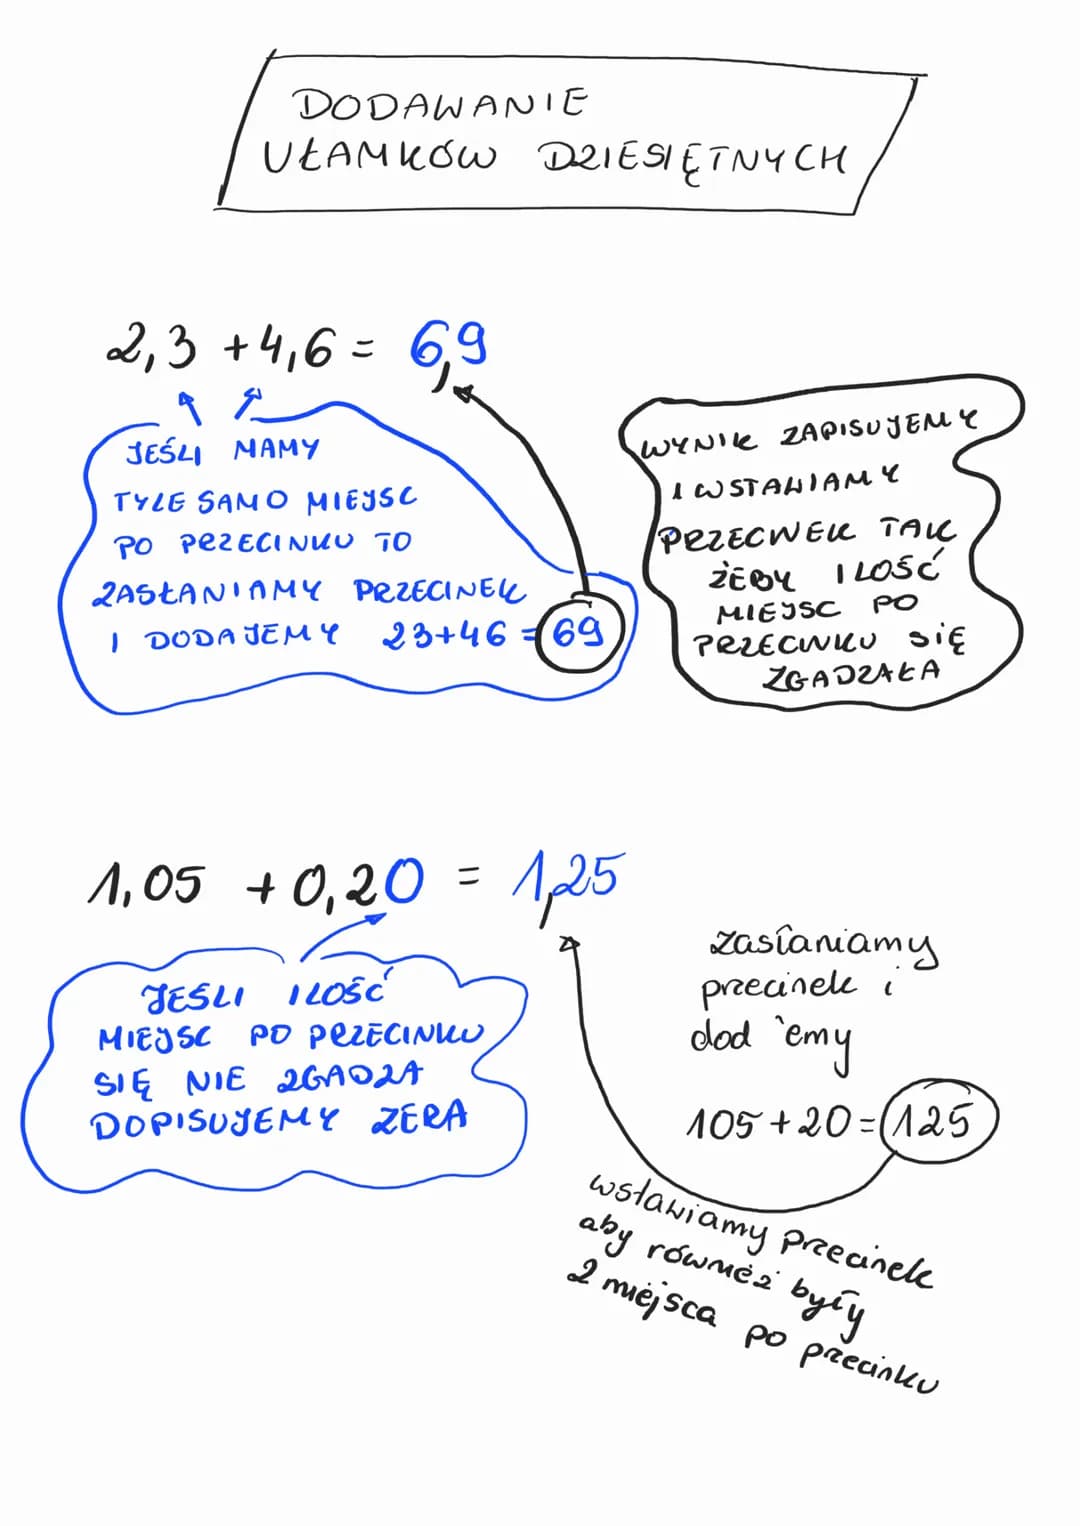 DODAWANIE
UŁAMKÓW DZIESIĘTNYCH
2,3 + 4,6 = 6,9
JEŚLI MAMY
TYLE SAMO MIEJSC
PO PRZECINKU TO
ZASŁANIAMY PRZECINEK
I DODAJEMY 23+46 = 69
WYNIK ZAPISUJEMY
I WSTAWIAMY
PRZECINEK TAK
ŻEBY ILOŚĆ
MIEJSC PO
PRZECINKU SIĘ
ZGADZAŁA
1,05 + 0,20 = 1,25
JEŚLI ILOŚĆ
MIEJSC PO PRZECINKU
SIĘ NIE ZGADZA
DOPISUJEMY ZERA
zasłaniamy
przecinek i
dod emy
105 + 20 = 125
wstawiamy przecinek
aby również były
2 miejsca po przecinku